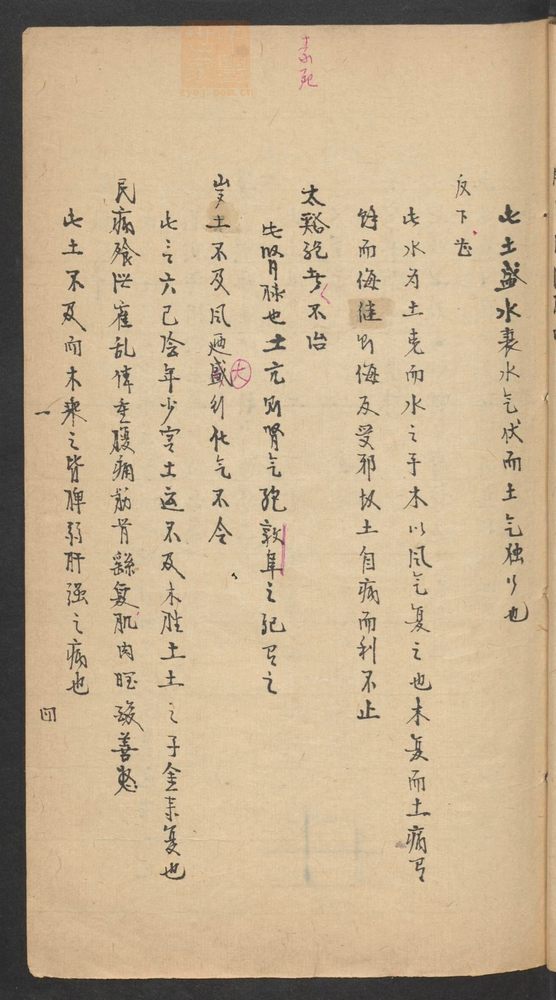 此土盛水衰水气伏而土气独行也
反下甚
此水为土克而水之子木以风气复之也木复而土病有
馀而侮 则侮反受邪故土自病而利不止
太谿绝者不治
此肾脉也土亢则肾气绝敦阜之纪有之
岁土不及风迺大盛行化气不令
此言六己阴年少宫土运不及木胜土土之子金来复也
民病飧泄霍乱体重腹痛筋骨繇复肌肉 酸善怒
此土不及而木乘之皆脾弱肝强之病也